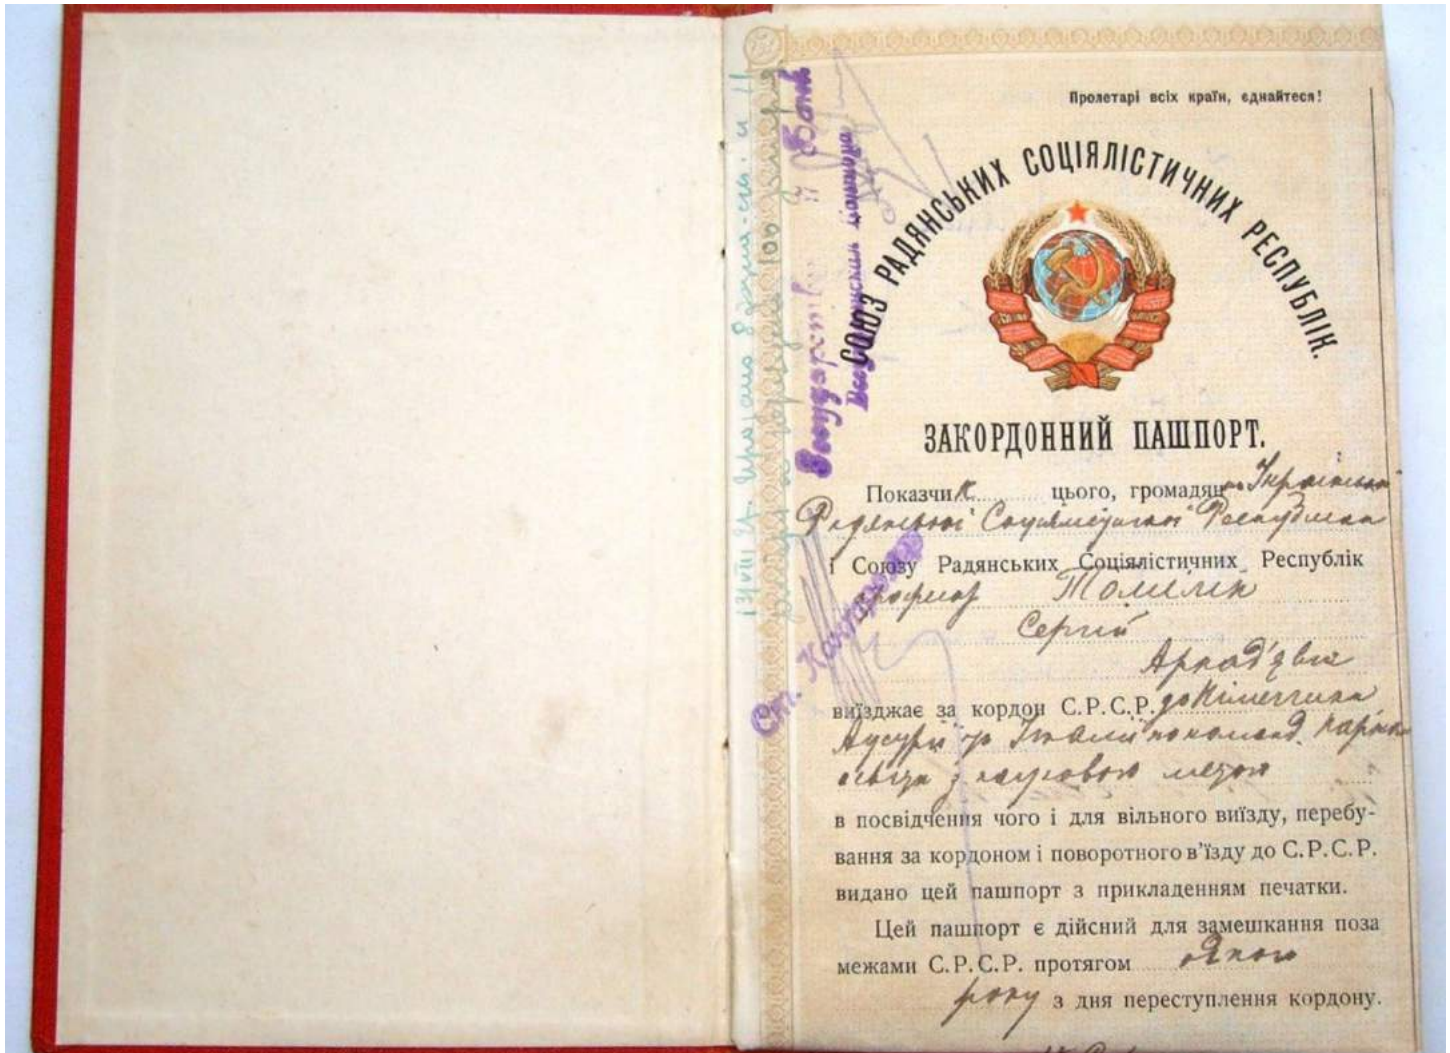 Пролетарі всіх країн, єднайтеся!
СОЮЗ РАДЯНСЬКИХ СОЦІЯЛІСТИЧНИХ РЕСПУБЛІК.
ЗАКОРДОННИЙ ПАШПОРТ.
Показчик цього, громадян
Радянської Соціялістичної Республики
і Союзу Радянських Соціялістичних Республік
професор Томілін
Сергій
Аркад'євич
виїзджає за кордон С.Р.С.Р. до Німеччини
з науковою метою
в посвідчення чого і для вільного виїзду, перебу-
вання за кордоном і поворотного в'їзду до С.Р.С.Р.
видано цей пашпорт з прикладенням печатки.
Цей пашпорт є дійсний для замешкання поза
межами С.Р.С.Р. протягом одного
року з дня переступлення кордону.
Ст. Контролер